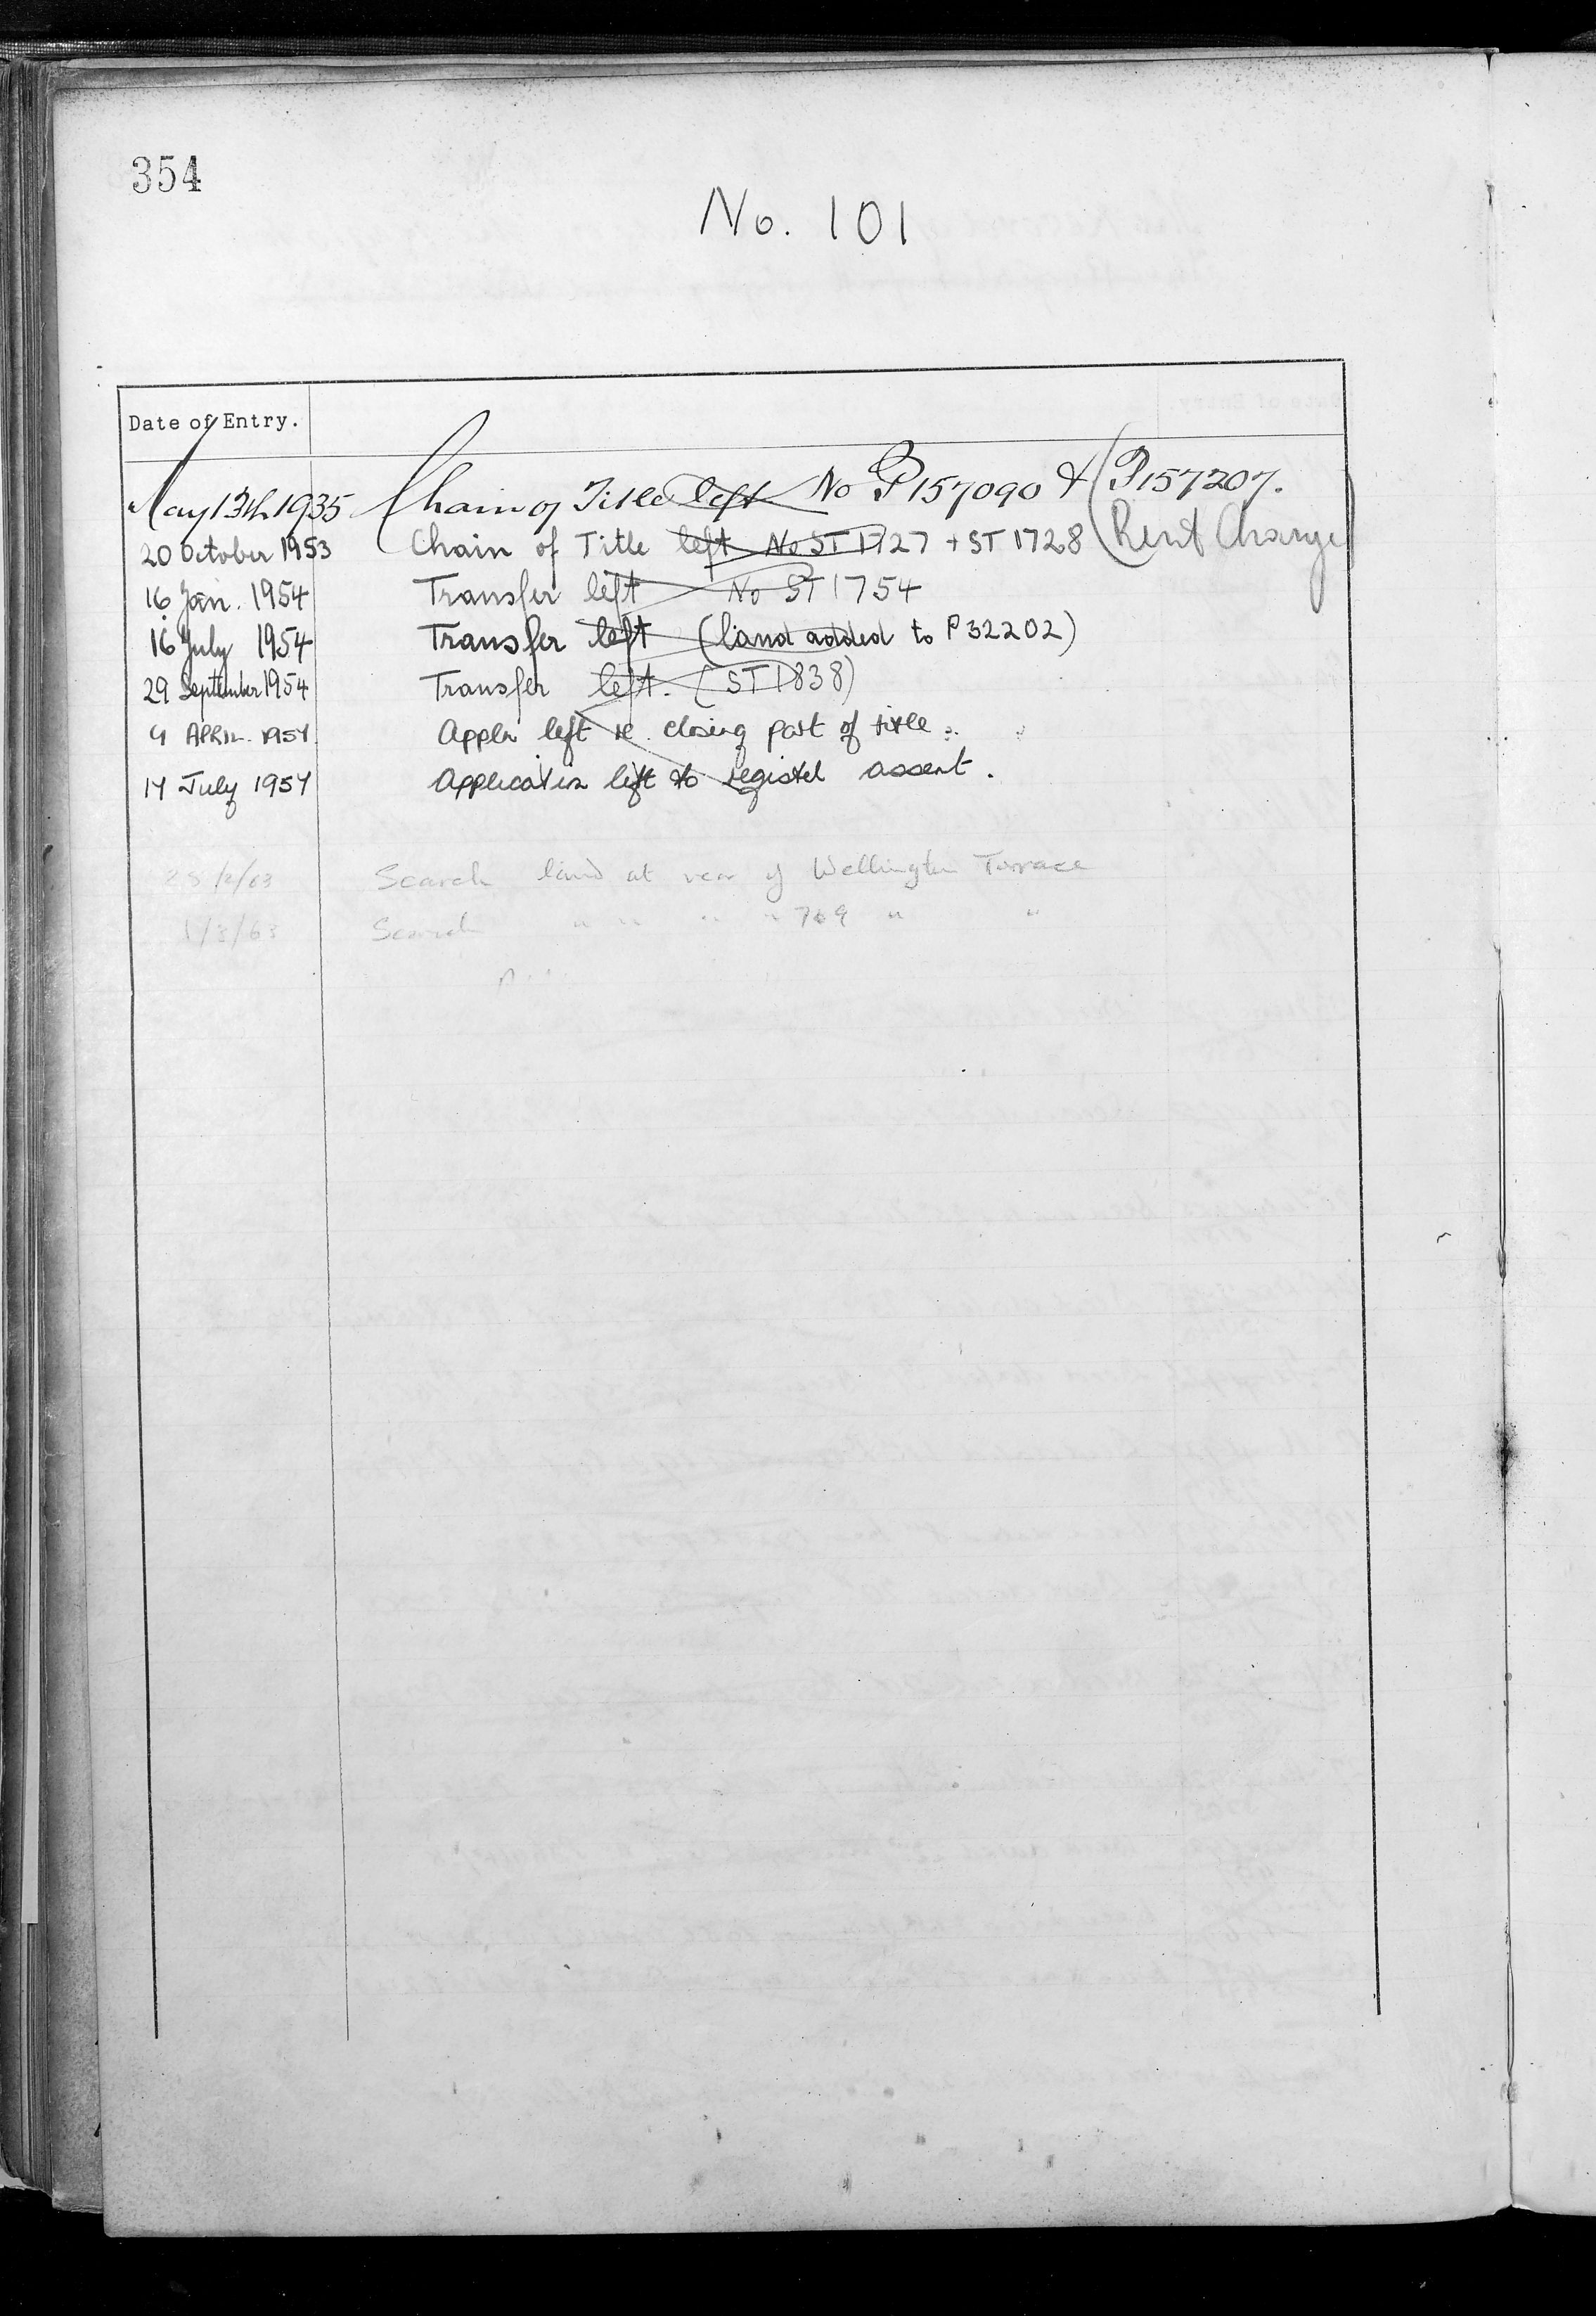 354
No. 101
Date of Entry.
May 13th 1935 Chain of Title left No P157090 & (P157207.
20 October 1953 Chain of Title left No ST 1727 + ST 1728 (Rent Charge)
16 Jan. 1954 Transfer left No ST 1754
16 July 1954 Transfer left (land added to P32202)
29 September 1954 Transfer left. (ST 1838)
9 APRIL 1957 Appln left re. closing part of title.
17 July 1957 Application left to register assent.
Search land at rear of Wellington Terrace
1/3/63 Search " " " " 7&9 " "